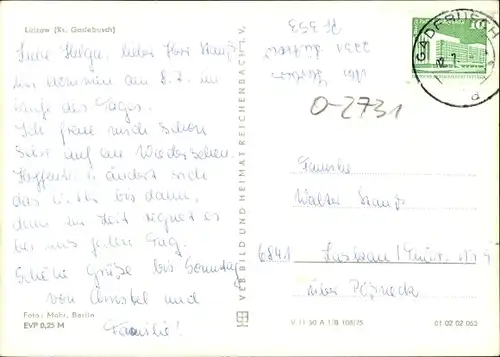 Lützow (Kr. Gadebusch)
Liebe Helga, lieber Herr
wir kommen am 8.2. im
Laufe des Tages.
Ich freue mich schon
sehr auf ein Wiedersehen.
Hoffentlich ändert sich
das Wetter bis dann,
denn zur Zeit regnet es
bei uns jeden Tag.
Schöne Grüße bis Sonntag
von Christel und
Familie!
Foto: Mohr, Berlin
EVP 0,25 M
VEB BILD UND HEIMAT REICHENBACH i. V.
GADEBUSCH
a
10
2731 Lützow
Nr 353
O-2731
Familie
Walter
6841
über Pößneck
V 11 50 A 1/B 108/75
01 02 02 062